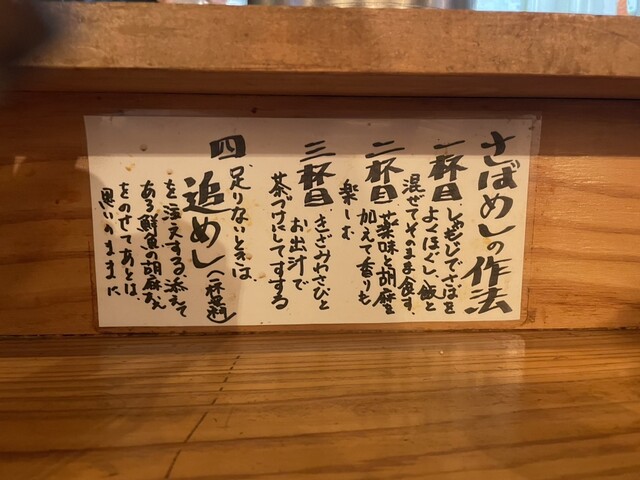 さばめしの作法
一杯目 しゃもじでさばを
よくほぐし、飯と
混ぜてそのまま食す。
二杯目 薬味と胡麻を
加えて香りも
楽しむ
三杯目 きざみわさびと
お出汁で
茶づけにしてすする
四、足りないときは、
追めし(一杯無料)
を注文する。添えて
ある鮮魚の胡麻あえ
をのせてあとは、
思いのままに